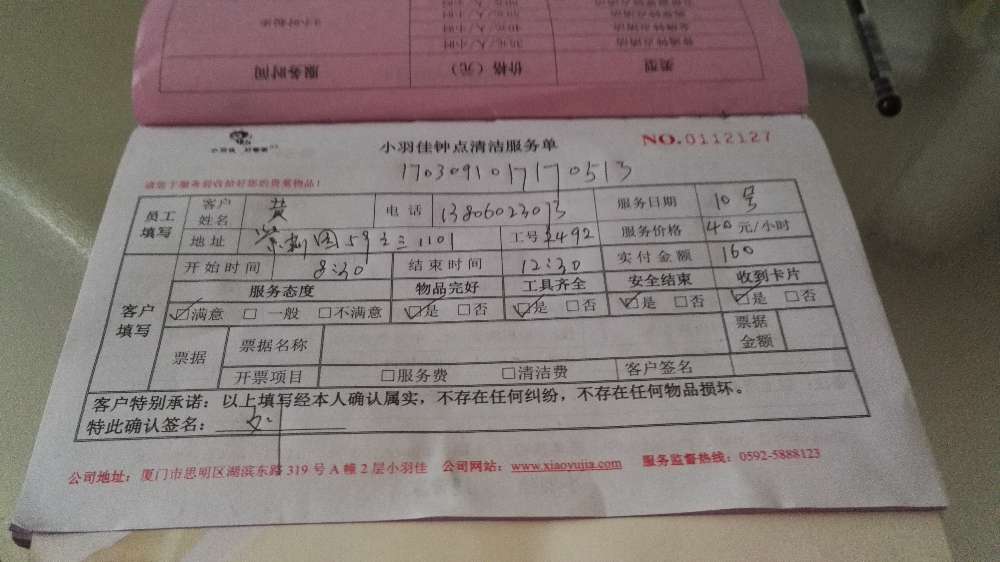 服务时间 价格（元） 类型
小羽佳 好管家
小羽佳钟点清洁服务单
NO.0112127
1703091017170513
请您于服务前收拾好您的贵重物品！
员工填写 客户姓名 黄 电话 13806023073 服务日期 10号
地址 紫荆园5号之三1101 工号 2492 服务价格 40元/小时
客户填写 开始时间 8:30 结束时间 12:30 实付金额 160
服务态度 物品完好 工具齐全 安全结束 收到卡片
☑满意 □一般 □不满意 ☑是 □否 ☑是 □否 ☑是 □否 ☑是 □否
票据 票据名称 票据金额
开票项目 □服务费 □清洁费 客户签名
客户特别承诺：以上填写经本人确认属实，不存在任何纠纷，不存在任何物品损坏。
特此确认签名：
公司地址：厦门市思明区湖滨东路319号A幢2层小羽佳 公司网站：www.xiaoyujia.com 服务监督热线：0592-5888123